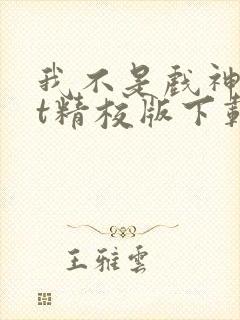 我不是戏神
t精校版下载
王雅雲